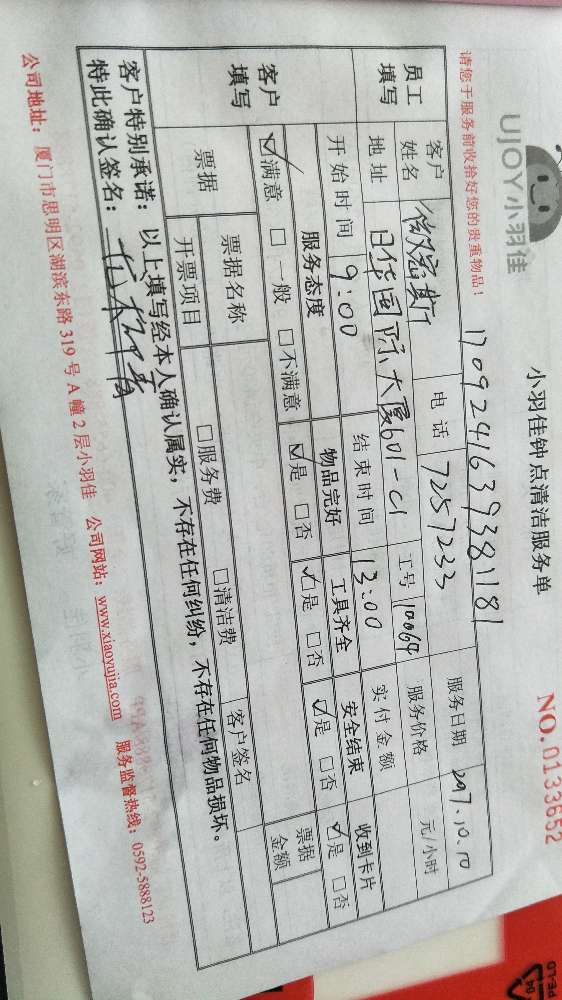 UJOY小羽佳
小羽佳钟点清洁服务单
NO.0133652
请您于服务前收拾好您的贵重物品!
170924163938 1181
员工填写
客户姓名
电话 7257233
服务日期 2017.10.10
地址 日华国际大厦601-C1
工号 10064
服务价格 元/小时
开始时间 9:00
结束时间 13:00
实付金额
客户填写
服务态度 物品完好 工具齐全 安全结束 收到卡片
☑满意 □一般 □不满意 ☑是 □否 ☑是 □否 ☑是 □否 ☑是 □否
票据
票据名称
客户签名
票据金额
开票项目 □服务费 □清洁费
客户特别承诺:以上填写经本人确认属实,不存在任何纠纷,不存在任何物品损坏。
特此确认签名:
公司地址:厦门市思明区湖滨东路319号A幢2层小羽佳 公司网站:www.xiaoyujia.com 服务监督热线:0592-5888123
04
PE-LD